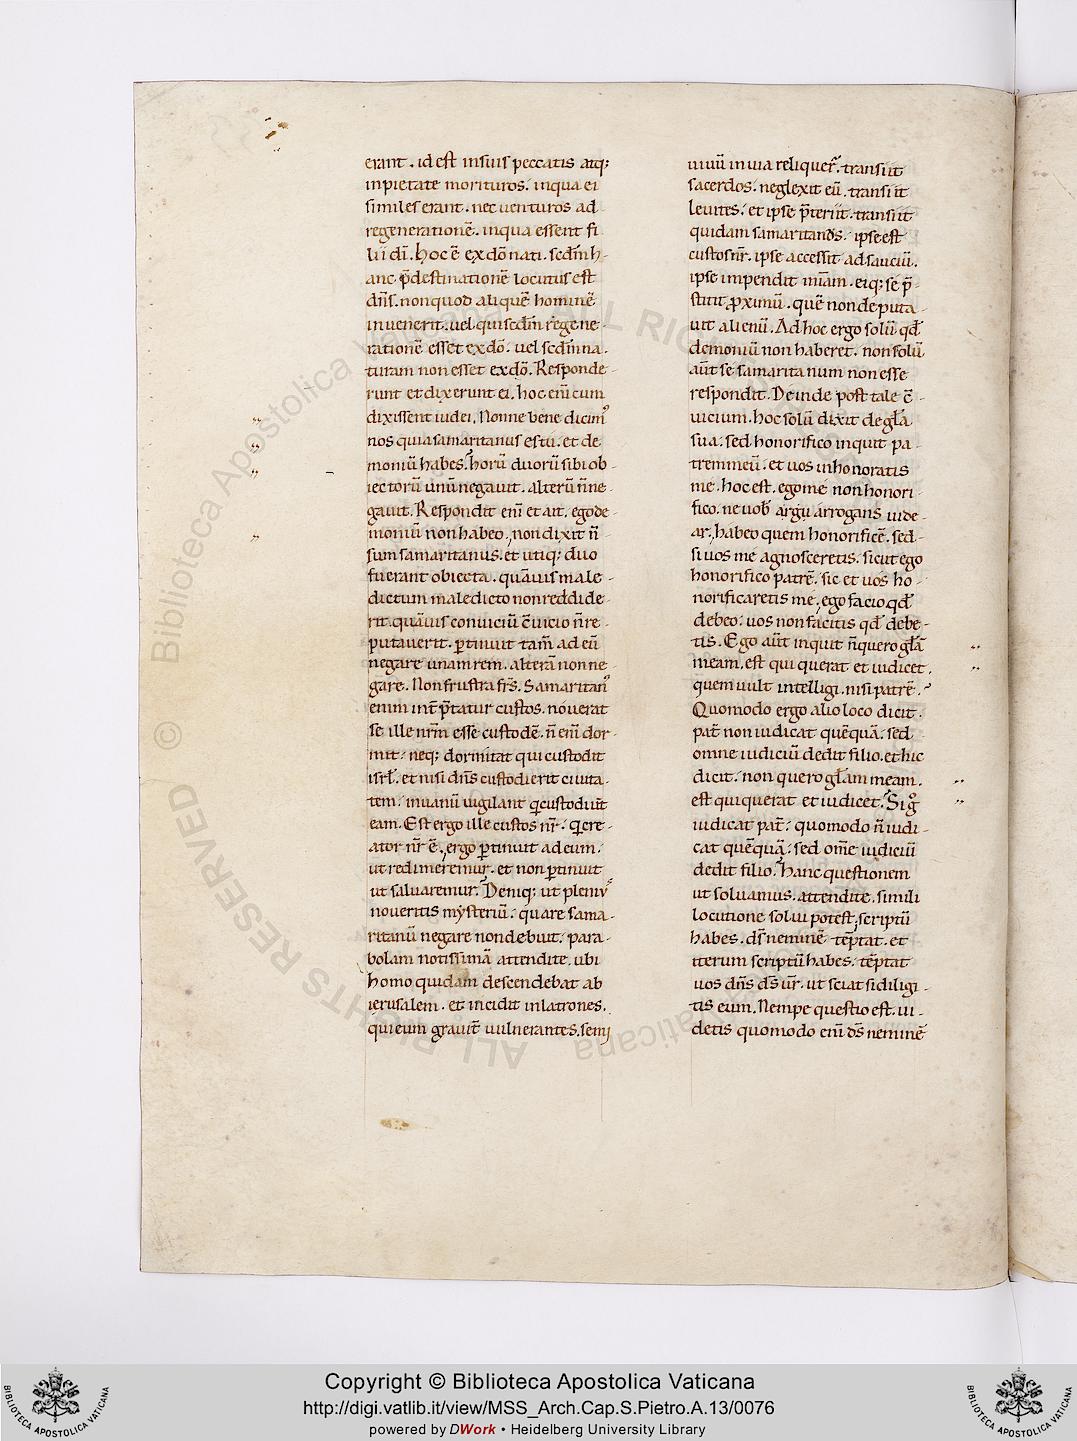 erant. id est in suis peccatis atq;
inpietate morituros. in qua ei
similes erant. nec uenturos ad
regenerationē. in qua essent fi
lii dī. hoc ē ex dō nati. scdm h
anc p̄destinationē locutus est
dn̄s. non quod aliquē hominē
inuenerit. uel qui scdm regene-
rationē esset ex dō. uel scdm na-
turam non esset ex dō. Responde
runt et dixerunt ei. hoc eni cum
dixissent iudei. Nonne bene dicim᾽
nos quia samaritanus es tu. et de
moniū habes. horū duorū sibi ob-
iectorū unū negauit. alterū n̄ ne-
gauit. Respondit eni et ait. ego de-
moniū non habeo, non dixit n̄
sum samaritanus. et utiq; duo
fuerant obiecta. quāuis male-
dictum maledicto non reddide-
rit. quāuis conuiciū c̄uicio n̄ re-
putauerit. ptinuit tam̄ ad eū
negare unam rem. alterā non ne-
gare. Non frustra frs̄. Samaritan᾽
enim int̄p̄tatur custos. nouerat
se ille nrm̄ esse custodē. n̄ eni dor-
mit. neq; dormitat qui custodit
isrl̄. et nisi dn̄s custodierit ciuita-
tem. inuanū uigilant q̄ custodiūt
eam. Est ergo ille custos nr̄. q̄ cre-
ator nr̄ ē, ergo ptinuit ad eum.
ut redimeremur. et non ptinuit
ut saluaremur? Deniq; ut pleni᾽
noueritis mysteriū. quare sama-
ritanū negare non debuit. para-
bolam notissimā attendite. ubi
homo quidam descendebat ab
ierusalem. et incidit in latrones.
qui eum grauit̄ uulnerantes. semi
uiuū in uia reliquer̄. transiit
sacerdos. neglexit eū. transiit
leuites. et ipse p̄teriit. transiit
quidam samaritanus. ipse est
custos nr̄. ipse accessit ad sauciū.
ipse impendit miam. eiq; se p̄-
stitit proximū. quē non deputa-
uit alienū. Ad hoc ergo solū qd̄
demoniū non haberet. non solū
aūt se samaritanum non esse
respondit. Deinde post tale c̄-
uicium. hoc solū dixit de gl̄a
sua. sed honorifico inquit pa-
trem meū. et uos inhonoratis
me. hoc est. ego me non honori-
fico. ne uob̄ argu arrogans uide-
ar, habeo quem honorificē. sed
si uos me agnosceretis. sicut ego
honorifico patrē. sic et uos ho-
norificaretis me, ego facio qd̄
debeo. uos non facitis qd̄ debe-
tis. Ego aūt inquit n̄ quero gl̄ā
meam. est qui querat et iudicet.
quem uult intelligi. nisi patrē.?
Quomodo ergo alio loco dicit.
pat̄ non iudicat quēquā. sed
omne iudiciū dedit filio. et hic
dicit. non quero gl̄am meam.
est qui querat et iudicet. Si g̊
iudicat pat̄. quomodo n̄ iudi-
cat quēquā. sed om̄e iudiciū
dedit filio? hanc questionem
ut soluamus. attendite. simili
locutione solui potest, scriptū
habes. ds̄ neminē tēptat. et
iterum scriptū habes. tēptat
uos dn̄s ds̄ ur̄. ut sciat si diligi-
tis eum. Nempe questio est. ui-
detis quomodo eni ds̄ neminē
Copyright © Biblioteca Apostolica Vaticana
http://digi.vatlib.it/view/MSS_Arch.Cap.S.Pietro.A.13/0076
powered by DWork • Heidelberg University Library
BIBLIOTECA APOSTOLICA VATICANA
BIBLIOTECA APOSTOLICA VATICANA
© Biblioteca Apostolica Vaticana ALL RIGHTS RESERVED
© Biblioteca Apostolica Vaticana ALL RIGHTS RESERVED